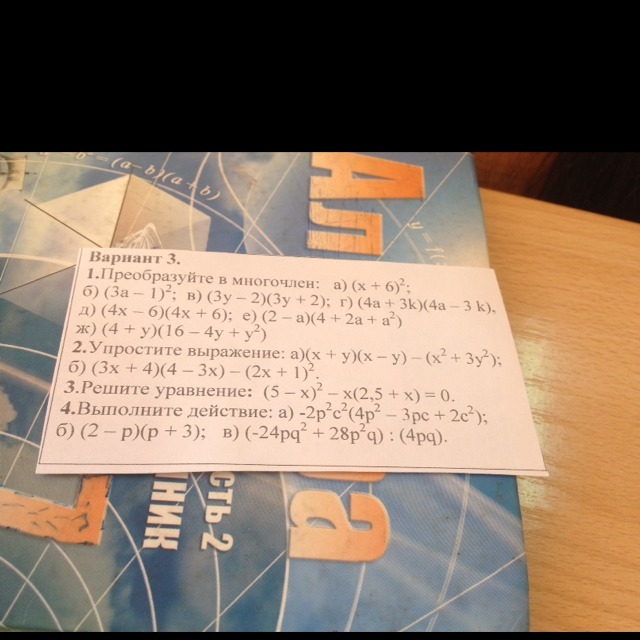 b² = (a−b)(a+b)
Ал
Вариант 3.
1.Преобразуйте в многочлен: а) (x + 6)²;
б) (3a – 1)²; в) (3y – 2)(3y + 2); г) (4a + 3k)(4a – 3 k),
д) (4x – 6)(4x + 6); е) (2 – a)(4 + 2a + a²)
ж) (4 + y)(16 – 4y + y²)
2.Упростите выражение: а)(x + y)(x – y) – (x² + 3y²);
б) (3x + 4)(4 – 3x) – (2x + 1)².
3.Решите уравнение: (5 – x)² – x(2,5 + x) = 0.
4.Выполните действие: а) -2p²c²(4p² – 3pc + 2c²);
б) (2 – p)(p + 3); в) (-24pq² + 28p²q) : (4pq).
а
сть 2
ник